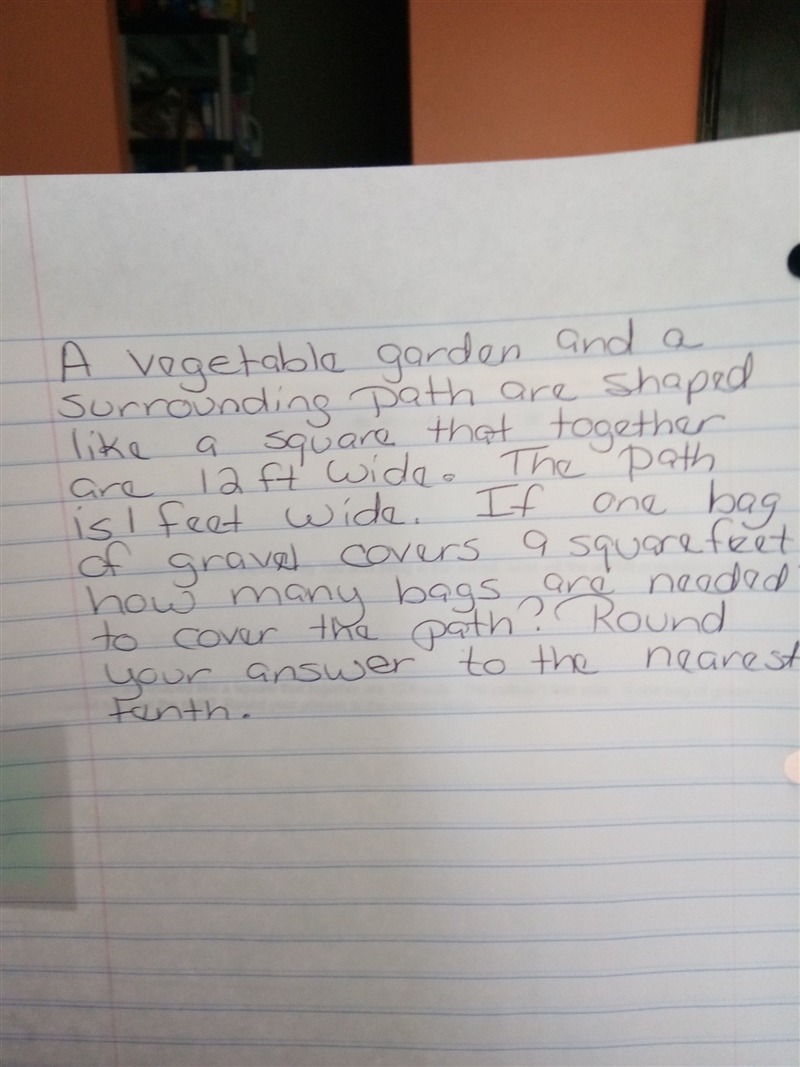 A vegetable garden and a
surrounding path are shaped
like a square that together
are 12 ft wide. The path
is 1 feet wide. If one bag
of gravel covers 9 square feet
how many bags are needed
to cover the path? Round
your answer to the nearest
tenth.